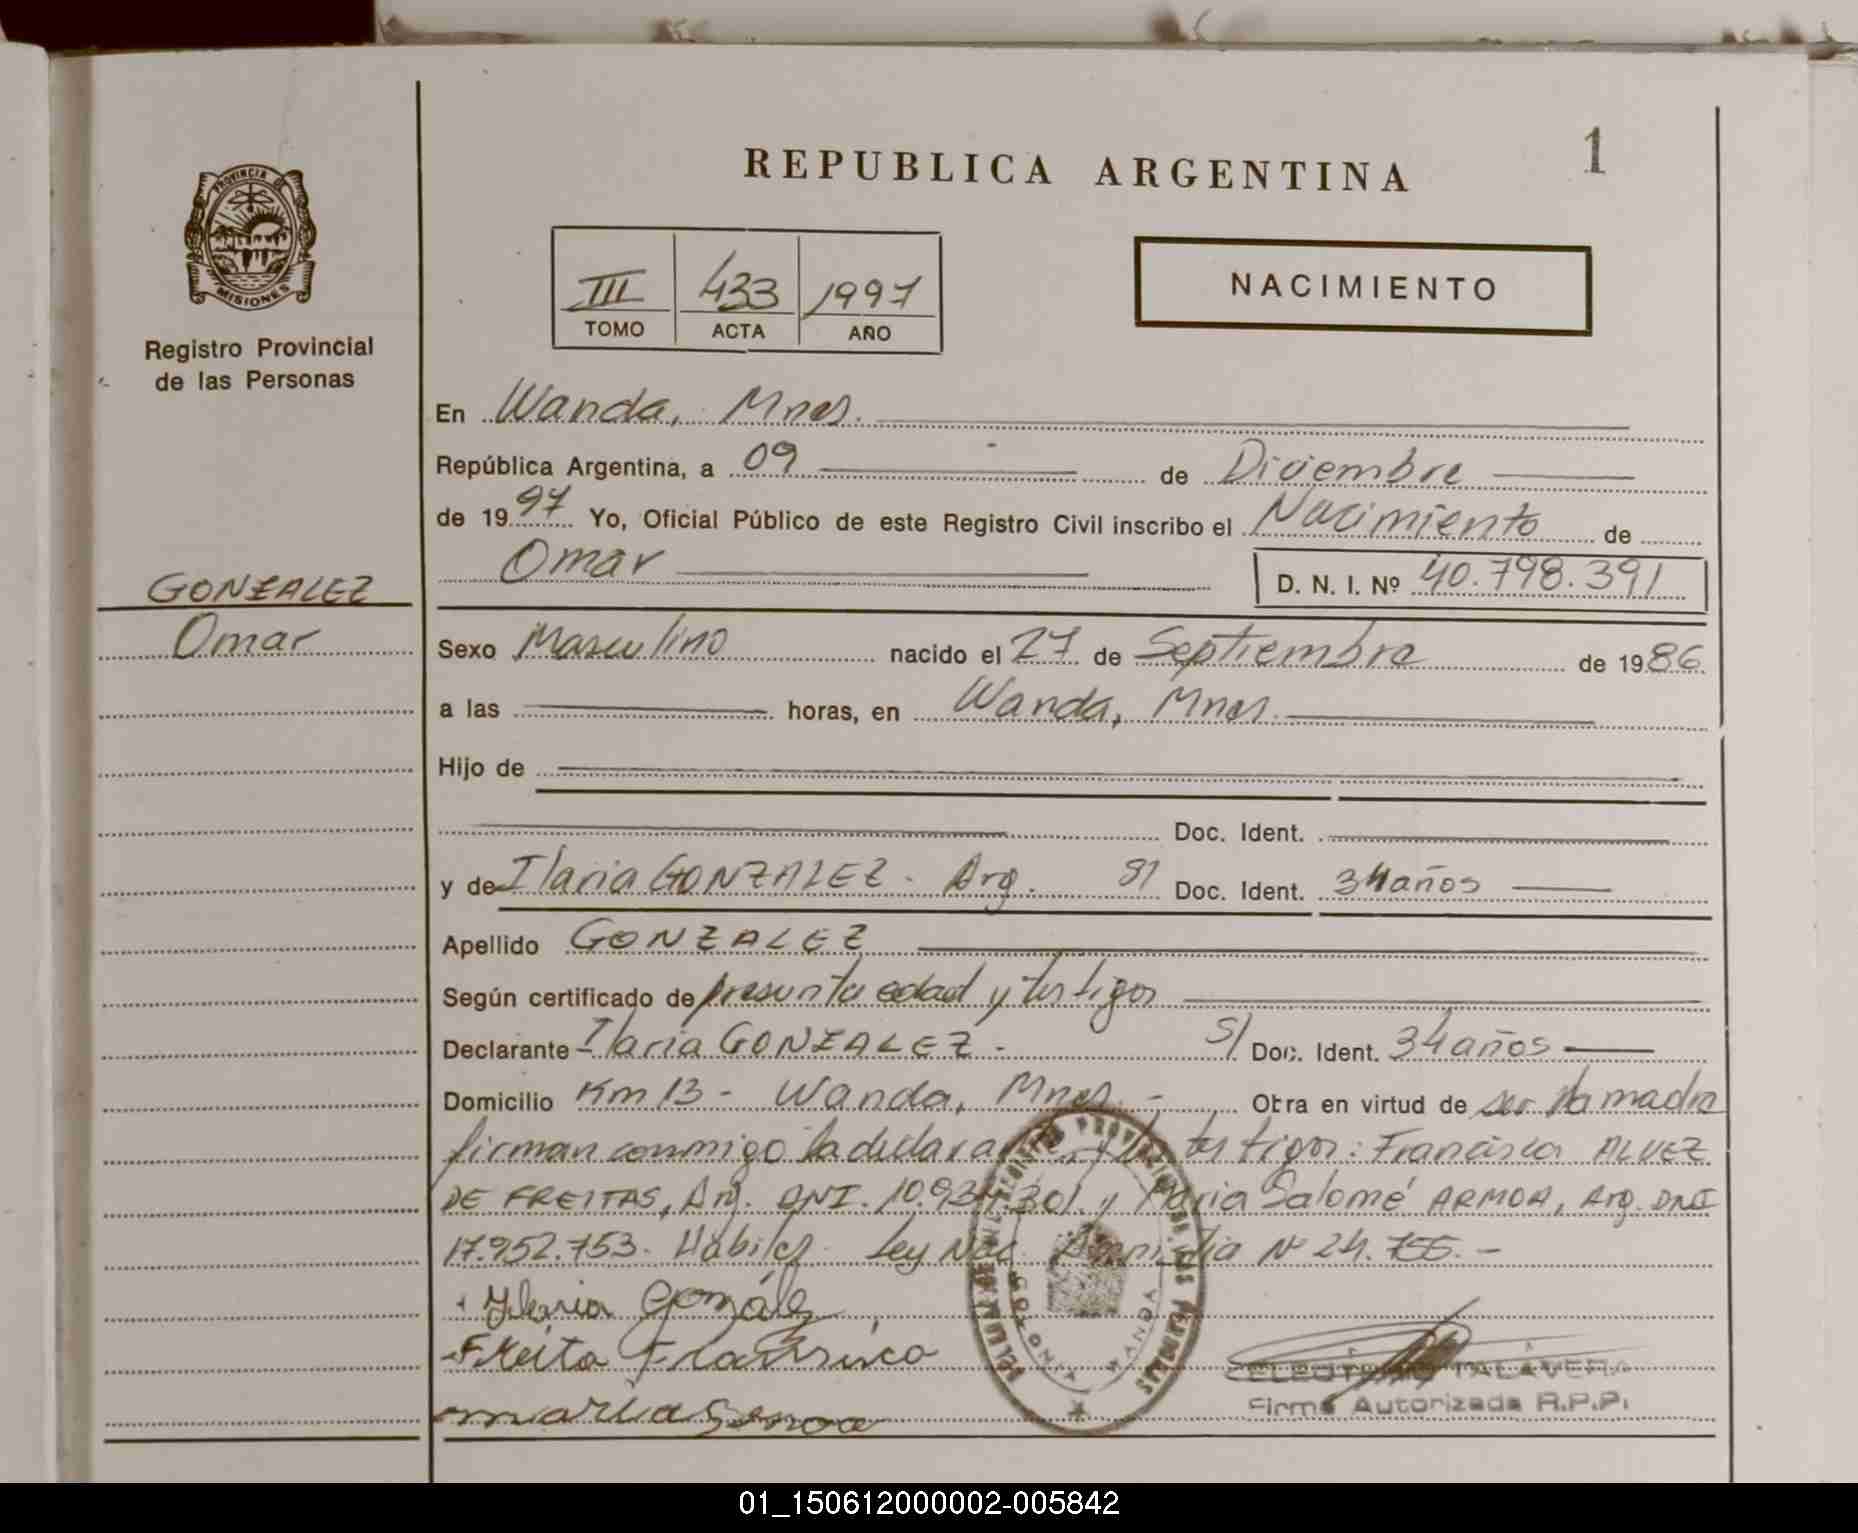 REPUBLICA ARGENTINA
1
PROVINCIA DE
MISIONES
Registro Provincial
de las Personas
III 433 1997
TOMO ACTA AÑO
NACIMIENTO
En Wanda, Mnes.
República Argentina, a 09 de Diciembre
de 1997 Yo, Oficial Público de este Registro Civil inscribo el Nacimiento de
Omar D. N. I. Nº 40.798.391
GONZALEZ
Omar
Sexo Masculino nacido el 27 de Septiembre de 1986
a las horas, en Wanda, Mnes.
Hijo de
Doc. Ident.
y de Ilaria GONZALEZ - Arg. S/ Doc. Ident. 34 años
Apellido GONZALEZ
Según certificado de presunta edad y testigos
Declarante Ilaria GONZALEZ - S/ Doc. Ident. 34 años
Domicilio Km 13 - Wanda, Mnes. - Obra en virtud de ser la madre
firman conmigo la declarante y los testigos: Francisca ALVEZ
DE FREITAS, Arg. DNI. 10.934.301. y María Salomé ARMOA, Arg. DNI
17.952.753. Habiles. Ley Nac. Amnistia Nº 24.755. -
Ilaria González
Freita Francisca
maria
WANDA
ELEUTERIO TALAVERA
Firma Autorizada R.P.P.
01_150612000002-005842